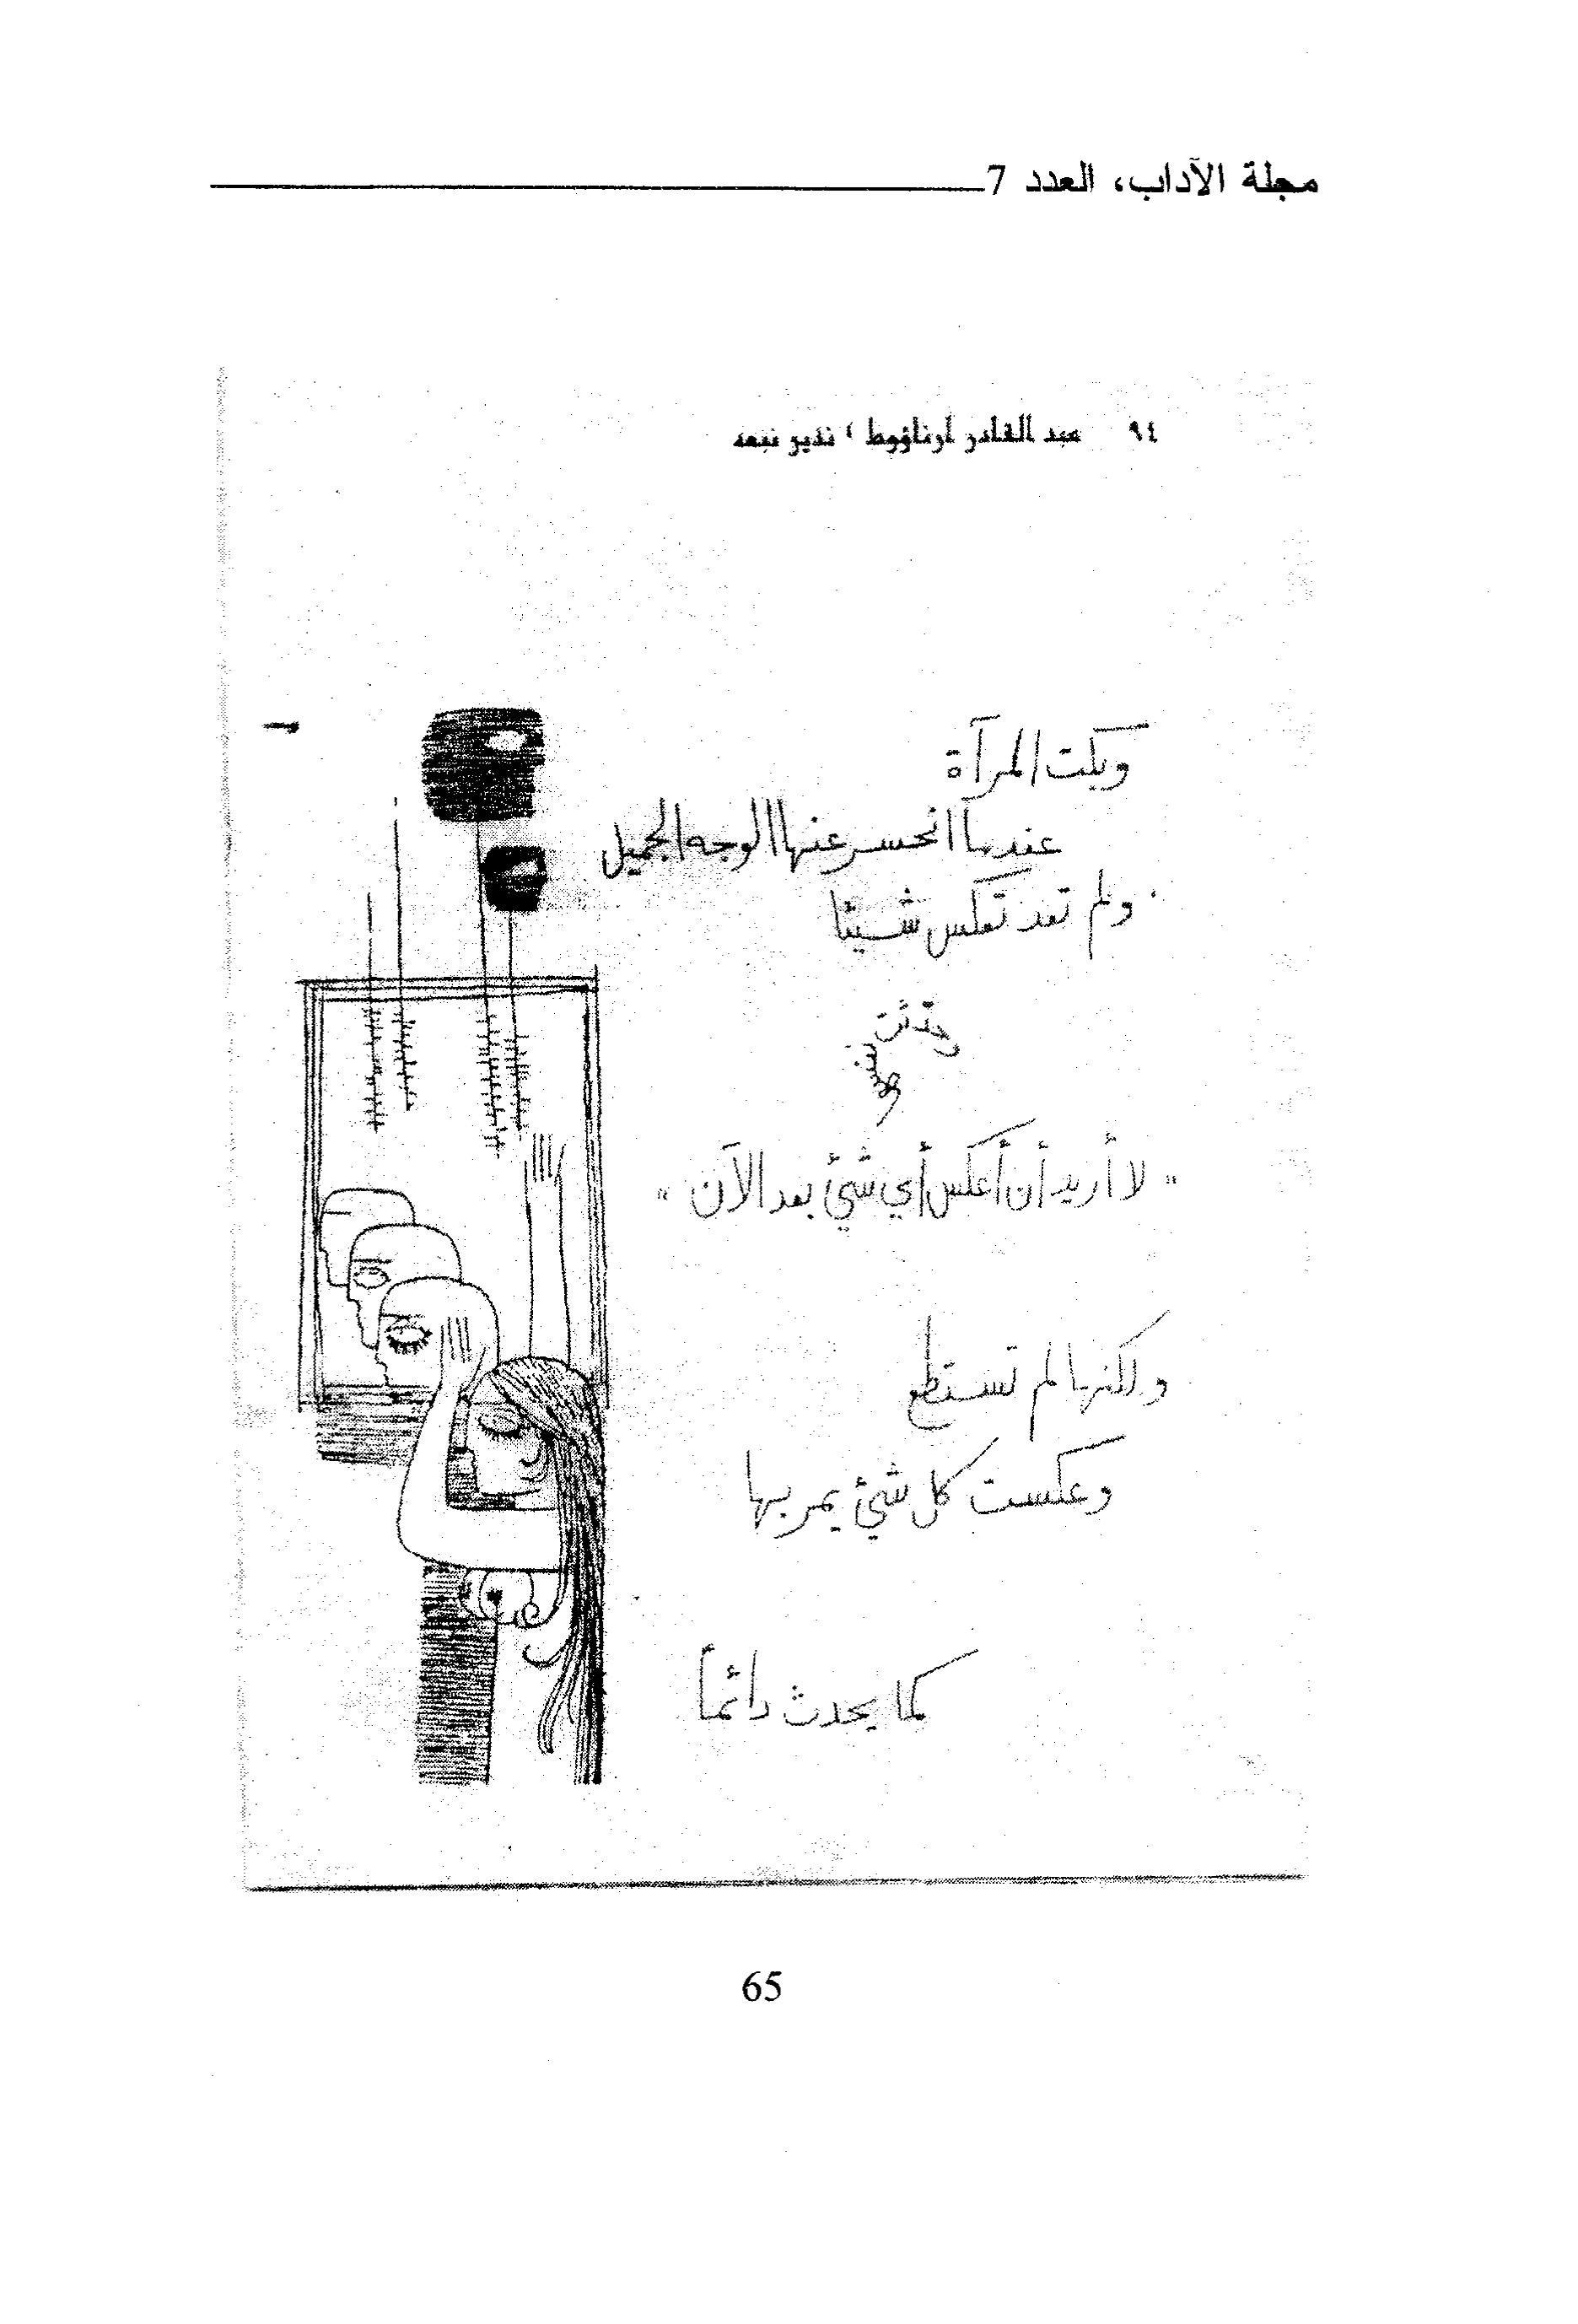 مجلة الآداب، العدد 7
٩٤ عبد القادر أرناؤوط ، نذير نبعه
وبكت المرآة
عندما انحسر عنها الوجه الجميل
ولم تعد تعكس شيئا
وحدثت
نفسها
" لا أريد أن أعكس أي شئ بعد الآن "
ولكنها لم تستطع
وعكست كل شئ يمر بها
كما يحدث دائماً
65